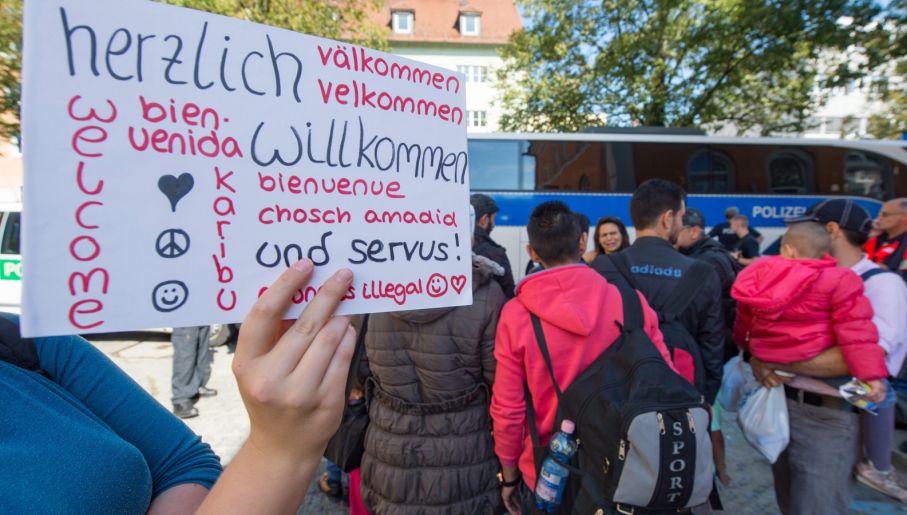 herzlich
välkommen
velkommen
welcome
bien.
venida
willkommen
karibu
bienvenue
chosch amadid
und servus!
illegal
POLIZE
adidas
SPORT
PO